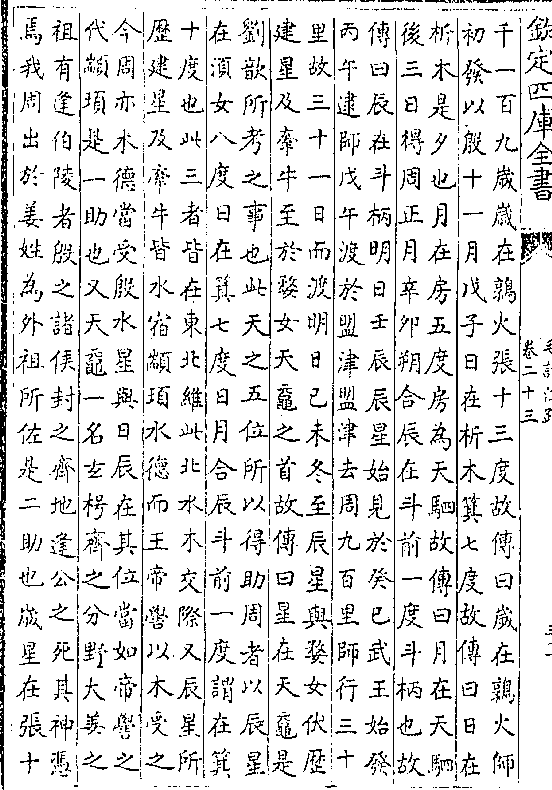 欽定四庫全書
卷二十三
千一百九歲歲在鶉火張十三度故傳曰歲在鶉火師
初發以殷十一月戊子日在析木箕七度故傳曰日在
析木是夕也月在房五度房為天駟故傳曰月在天駟
後三日得周正月辛卯朔合辰在斗前一度斗柄也故
傳曰辰在斗柄明日壬辰辰星始見於癸巳武王始發
丙午逮師戊午渡於盟津盟津去周九百里師行三十
里故三十一日而渡明日己未冬至辰星與婺女伏歷
建星及牽牛至於婺女天黿之首故傳曰星在天黿是
劉歆所考之事也此天之五位所以得助周者以辰星
在須女八度日在箕七度日月合辰斗前一度謂在箕
十度也此三者皆在東北維此北水木交際又辰星所
歷建星及牽牛皆水宿顓頊水德而王帝嚳以木受之
今周亦木德當受殷水星與日辰在其位當如帝嚳之
代顓頊是一助也又天黿一名玄枵齊之分野大姜之
祖有逢伯陵者殷之諸侯封之齊地逢公之死其神憑
焉我周出於姜姓為外祖所佐是二助也歲星在張十